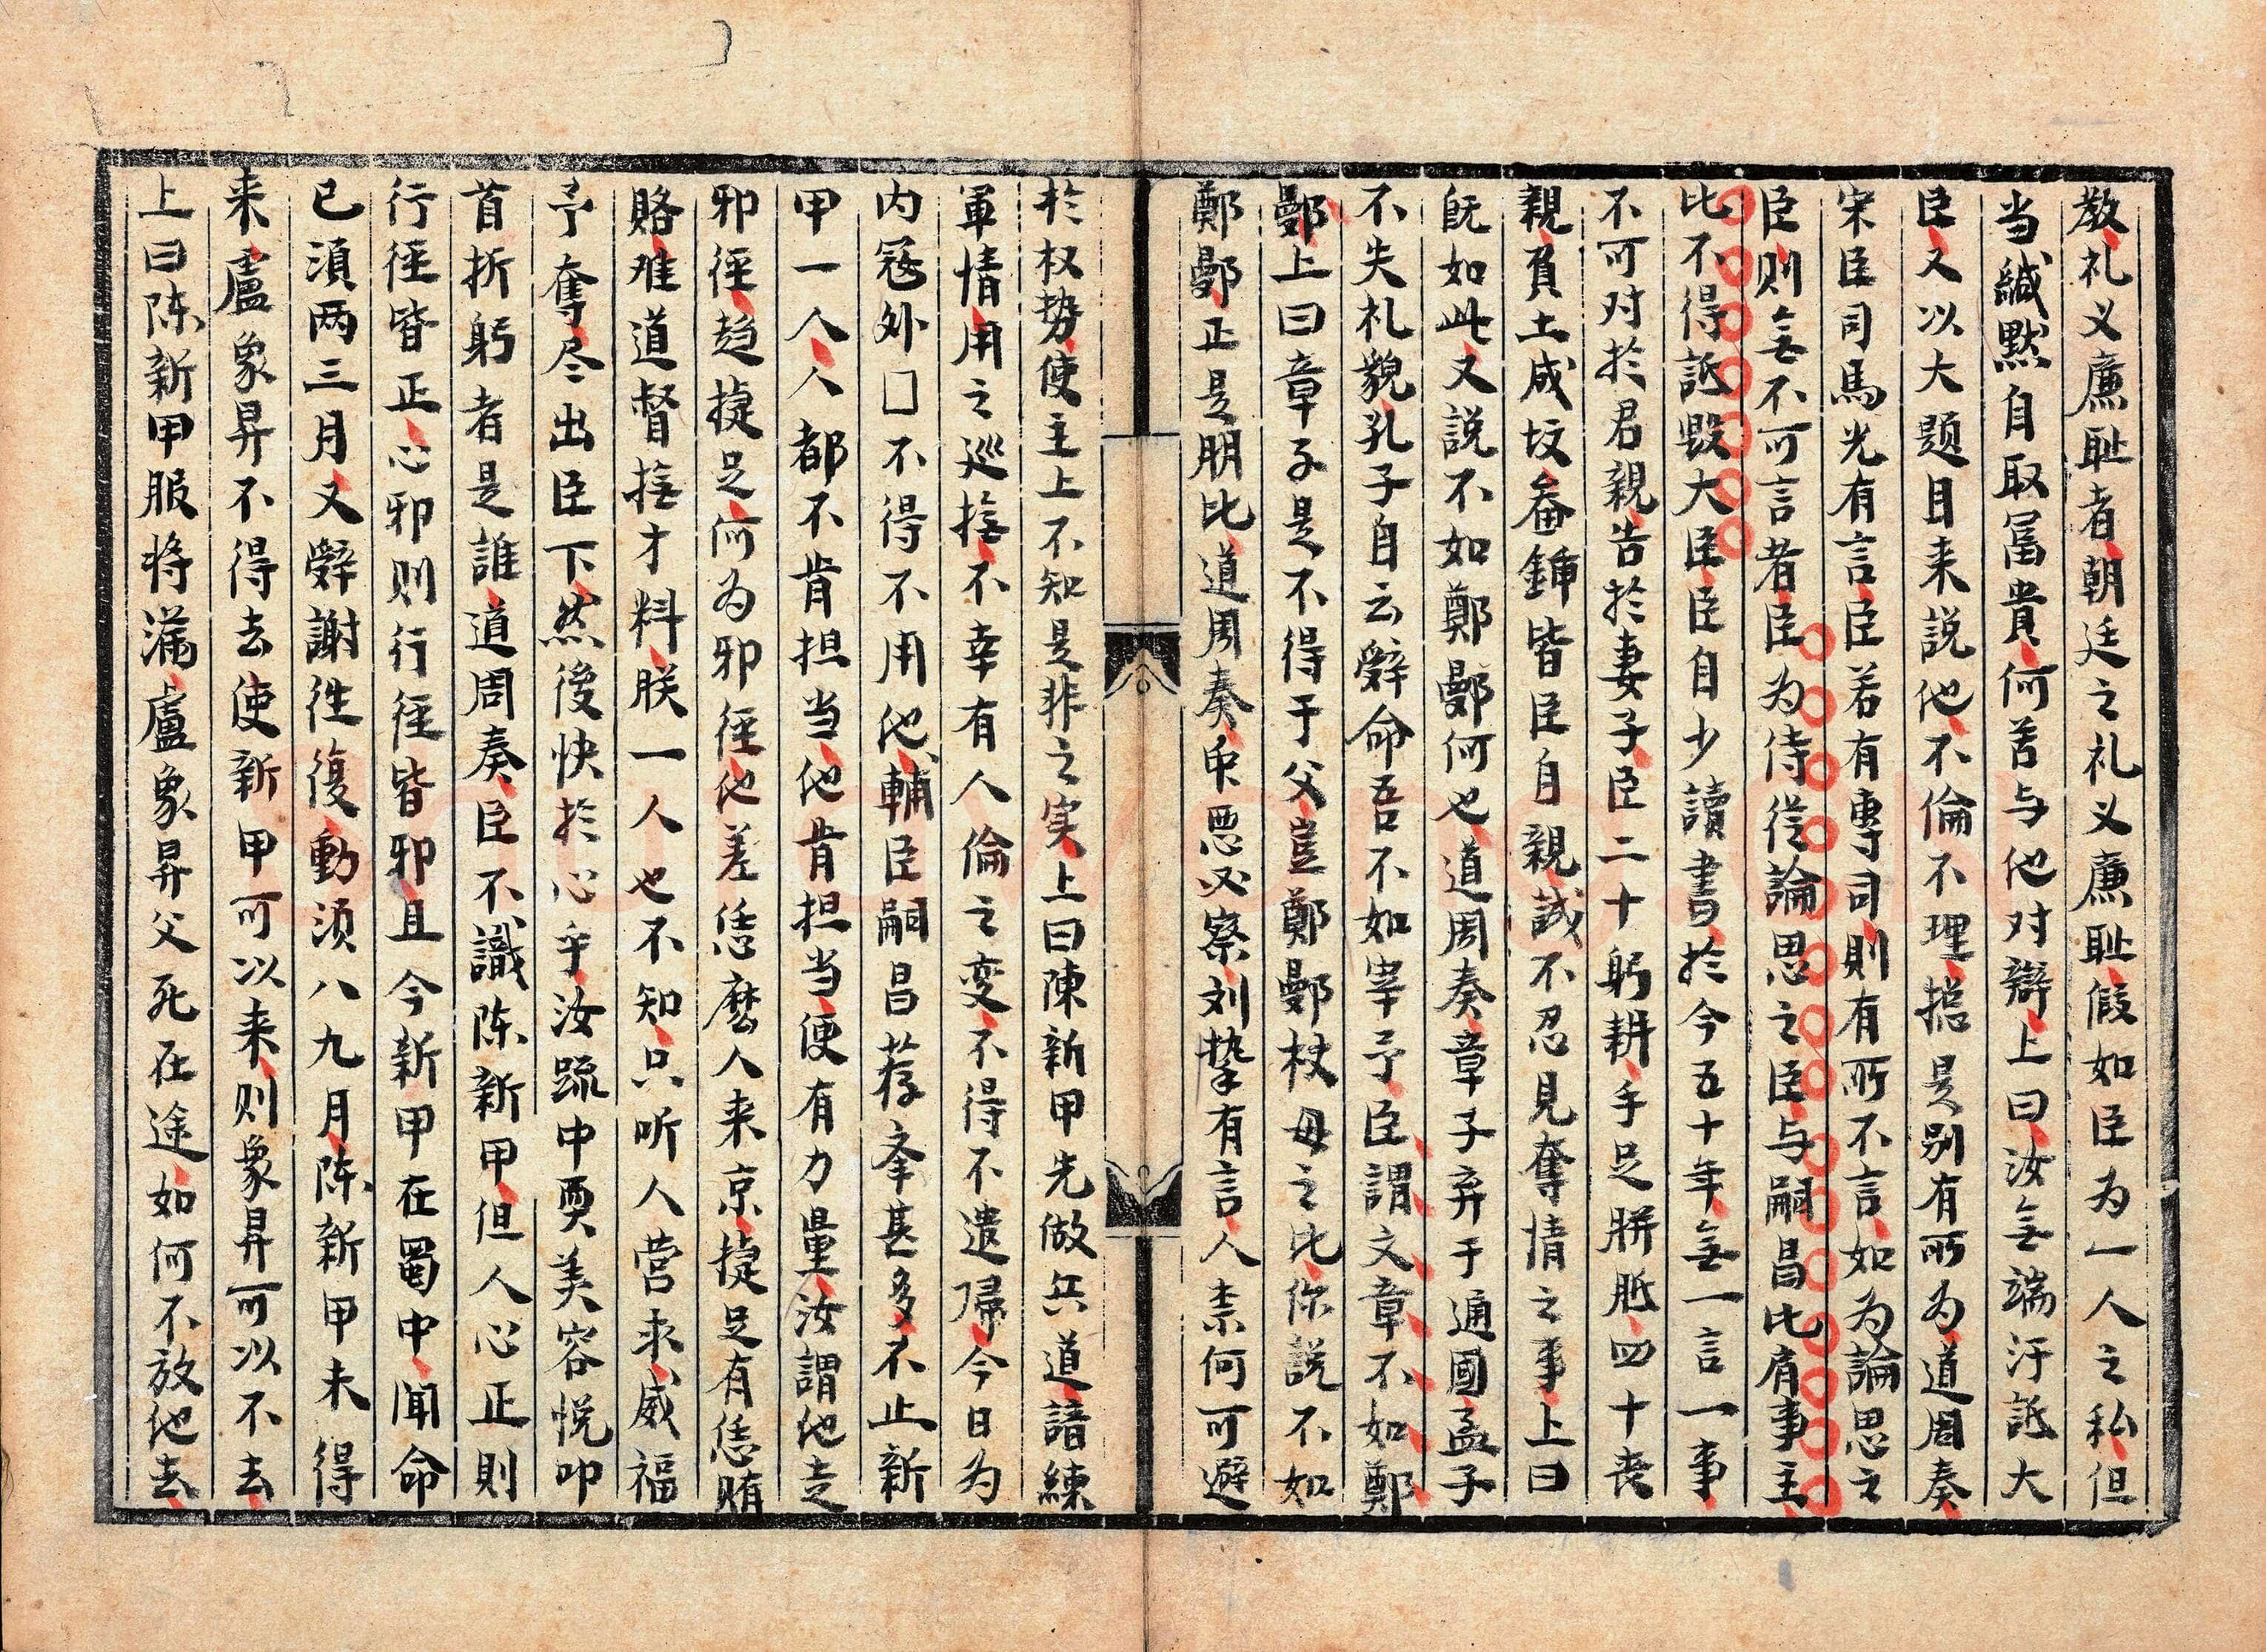 教礼义廉耻者朝廷之礼义廉耻假如臣为一人之私但
当緘黙自取冨貴何苦与他对辯上曰汝无端汙詆大
臣又以大题目来説他不倫不理揔是别有所为道周奏
宋臣司馬光有言臣若有專司則有所不言如为論思之
臣则无不可言者臣为侍從論思之臣与嗣昌比肩事主
比不得詆毀大臣臣自少讀書於今五十年无一言一事
不可对於君親告於妻子臣二十躬耕手足胼胝四十丧
親負土成坟畚鍤皆臣自親誠不忍見奪情之事上曰
既如此又説不如鄭鄤何也道周奏章子弃于通國孟子
不失礼貌孔子自云辭命吾不如宰予臣謂文章不如鄭
鄤上曰章子是不得于父豈鄭鄤杖母之比你説不如
鄭鄤正是朋比道周奏衆悪必察刘摯有言人禀何可避
於权势使主上不知是非之实上曰陳新甲先做兵道諳練
軍情用之巡撫不幸有人倫之变不得不遣歸今日为
内寇外□不得不用他輔臣嗣昌荐牽甚多不止新
甲一人人都不肯担当他肯担当便有力量汝謂他走
邪徑趋捷足何为邪徑他差恁麽人来京捷足有恁賄
賂难道督撫才料朕一人也不知只听人营求威福
予奪尽出臣下然後快於心乎汝疏中耎美容悦叩
首折躬者是誰道周奏臣不識陈新甲但人心正則
行徑皆正心邪则行徑皆邪且今新甲在蜀中闻命
已湏两三月又辭謝往復動须八九月陈新甲未得
来盧象昇不得去使新甲可以来则象昇可以不去
上曰陈新甲服将满盧象昇父死在途如何不放他去